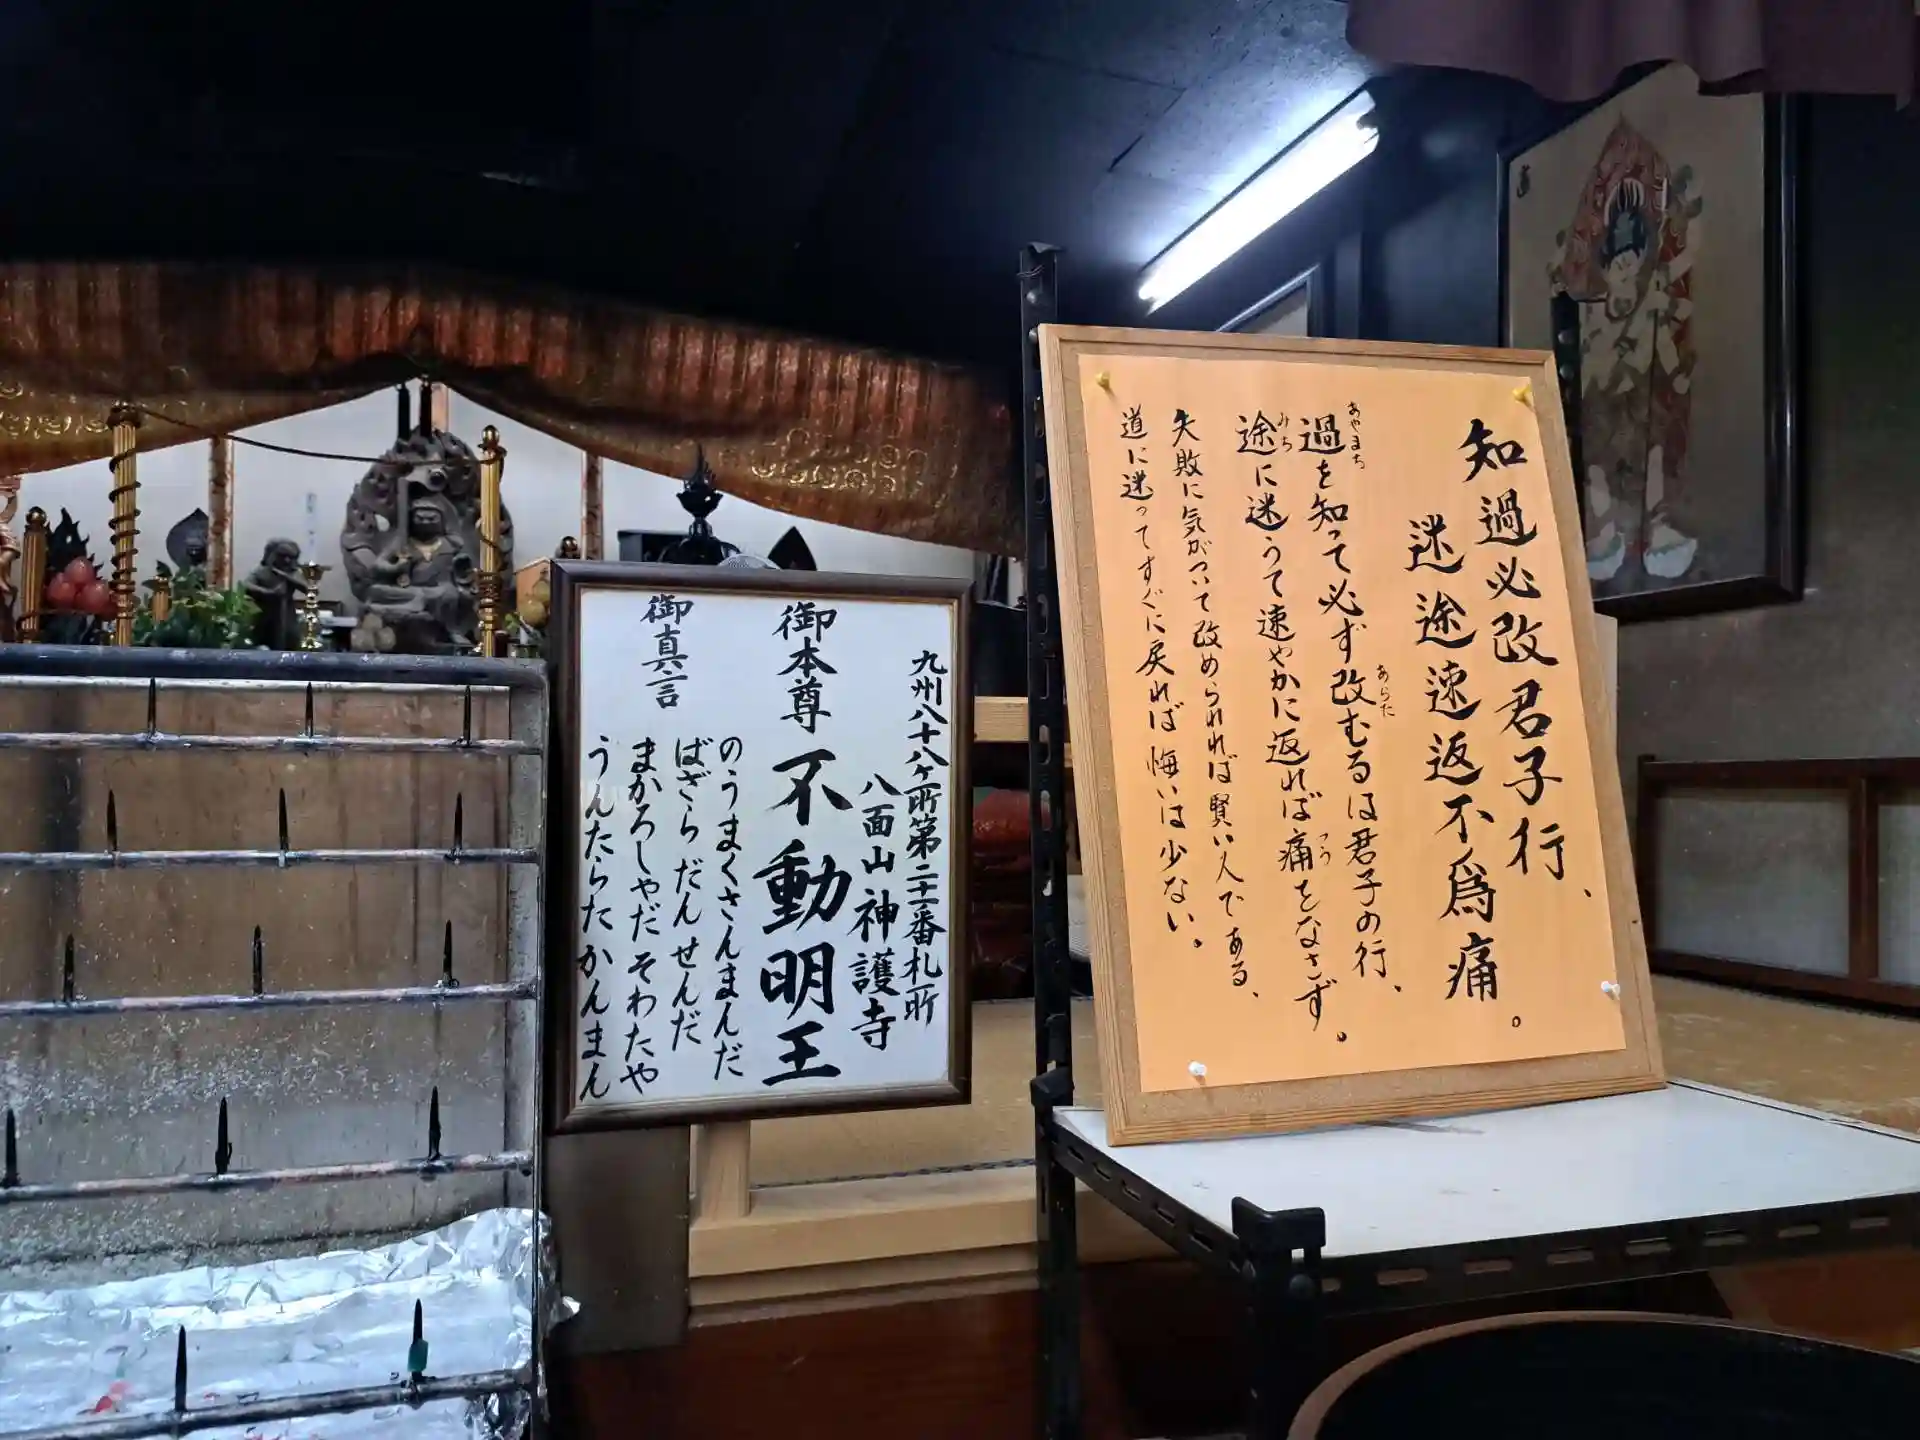 知過必改君子行、
迷途速返不為痛。
過を知って必ず改むるは君子の行、
あやまち
あらた
途に迷うて速やかに返れば痛をなさず。
みち
つう
失敗に気がついて改められれば賢い人である、
道に迷ってすぐに戻れば悔いは少ない。
九州八十八ヶ所第二十二番札所
八面山神護寺
御本尊 不動明王
御真言
のうまくさんまんだ
ばざらだんせんだ
まかろしゃだそわたや
うんたらたかんまん